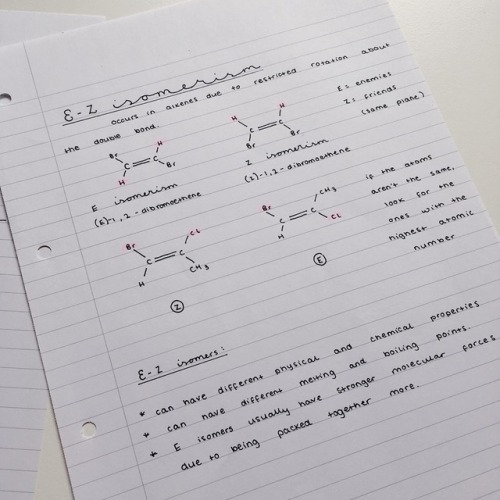 E-Z isomerism
occurs in alkenes due to restricted rotation about
the double bond.
E = enemies
Z = friends
(same plane)
Br H
C = C
H Br
E isomerism
(E)-1,2-dibromoethene
H H
C = C
Br Br
Z isomerism
(Z)-1,2-dibromoethene
Br Cl
C = C
H CH3
Z
Br CH3
C = C
H Cl
E
if the atoms
aren't the same,
look for the
ones with the
highest atomic
number
E-Z isomers:
* can have different physical and chemical properties
* can have different melting and boiling points.
* E isomers usually have stronger molecular forces
due to being packed together more.